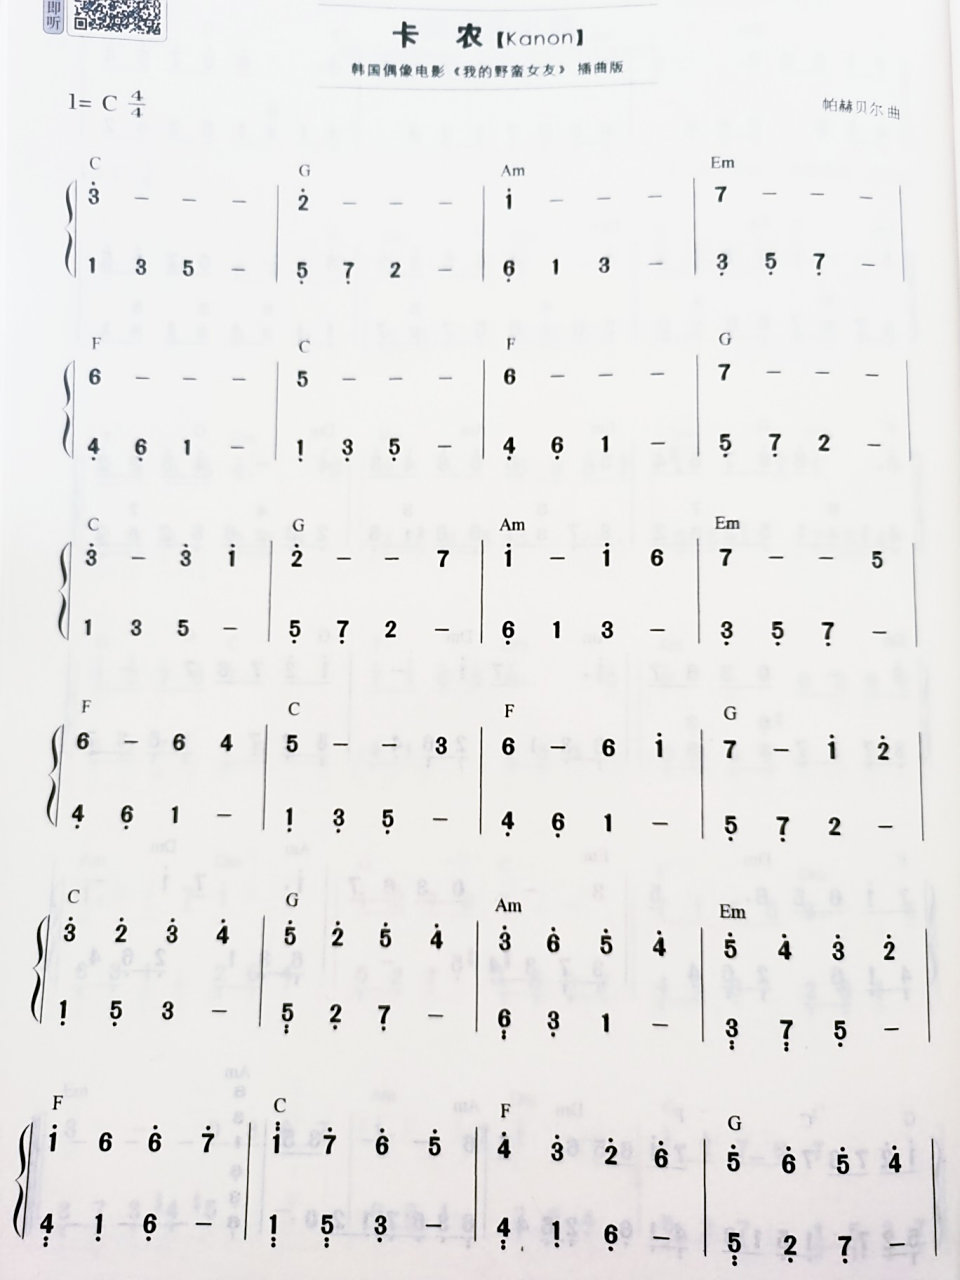 即
听
卡 农【Kanon】
韩国偶像电影《我的野蛮女友》插曲版
1= C 4/4
帕赫贝尔 曲
C G Am Em
3̇ – – – 2̇ – – – 1̇ – – – 7 – – –
1 3 5 – 5̣ 7̣ 2 – 6̣ 1 3 – 3̣ 5̣ 7̣ –
F C F G
6 – – – 5 – – – 6 – – – 7 – – –
4̣ 6̣ 1 – 1̣ 3̣ 5̣ – 4̣ 6̣ 1 – 5̣ 7̣ 2 –
C G Am Em
3̇ – 3̇ 1̇ 2̇ – – 7 1̇ – 1̇ 6 7 – – 5
1 3 5 – 5̣ 7̣ 2 – 6̣ 1 3 – 3̣ 5̣ 7̣ –
F C F G
6 – 6 4 5 – – 3 6 – 6 1̇ 7 – 1̇ 2̇
4̣ 6̣ 1 – 1̣ 3̣ 5̣ – 4̣ 6̣ 1 – 5̣ 7̣ 2 –
C G Am Em
3̇ 2̇ 3̇ 4̇ 5̇ 2̇ 5̇ 4̇ 3̇ 6̇ 5̇ 4̇ 5̇ 4̇ 3̇ 2̇
1̣ 5̣ 3 – 5̤ 2̣ 7̣ – 6̤ 3̣ 1 – 3̤ 7̤ 5̣ –
F C F G
1̇ 6 6̇ 7̇ 1̈ 7̇ 6̇ 5̇ 4̇ 3̇ 2̇ 6̇ 5̇ 6̇ 5̇ 4̇
4̤ 1̣ 6̣ – 1̣ 5̣ 3̣ – 4̤ 1̣ 6̣ – 5̤ 2̣ 7̣ –